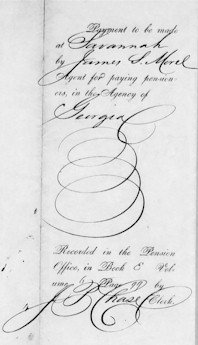 Payment to be made
at Savannah
by James S. Morel
Agent for paying pension-
ers, in the Agency of
Georgia
Recorded in the Pension
Office, in Book E Vol-
ume Page 99 by
J. R. Chase Clerk.